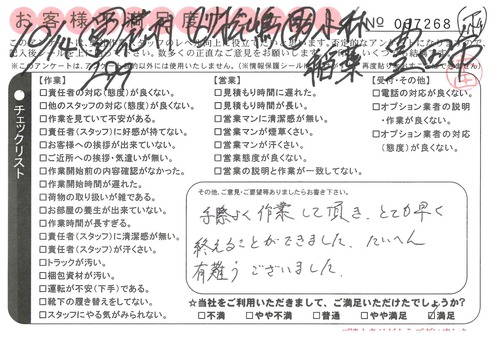 お客様満足度
No 007268
このアンケートは、
スタッフのレベル向上に役立
記入後シールを上に貼
※このアンケートは、
目的以外には使用いたしません。(※情報保護シール
チェックリスト
【作業】
□責任者の対応(態度)が良くない。
□他のスタッフの対応(態度)が良くない。
□作業を見ていて不安がある。
□責任者(スタッフ)に好感が持てない。
□お客様への挨拶が出来ていない。
□ご近所への挨拶・気遣いが無い。
□作業開始前の内容確認がなかった。
□作業開始時間が遅れた。
□荷物の取り扱いが雑である。
□お部屋の養生が出来ていない。
□作業時間が長すぎる。
□責任者(スタッフ)に清潔感が無い。
□責任者(スタッフ)が汗くさい。
□トラックが汚い。
□梱包資材が汚い。
□運転が不安(下手)である。
□靴下の履き替えをしてない。
□スタッフにやる気がみられない。
【営業】
□見積もり時間に遅れた。
□見積もり時間が長い。
□営業マンに清潔感が無い。
□営業マンが煙草くさい。
□営業マンが汗くさい。
□営業態度が良くない。
□営業の説明と作業が一致してない。
【受付・その他】
□電話の対応が良くない。
□オプション業者の説明
・作業が良くない。
□オプション業者の対応
(態度)が良くない。
その他、ご意見・ご要望等ありましたらお書き下さい。
手際よく作業して頂き、とても早く
終えることができました。たいへん
有難うございました。
☆当社をご利用いただきまして、ご満足いただけたでしょうか?
□不満 □やや不満 □普通 □やや満足 ☑満足